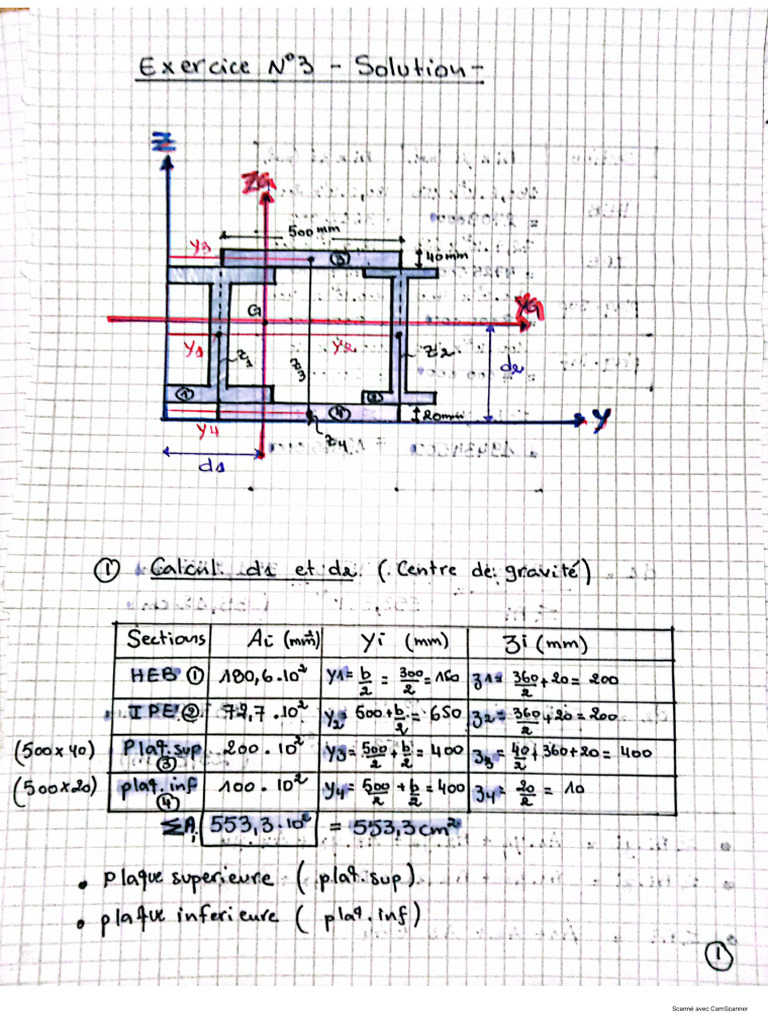 Exercice N°3 - Solution -
Z
ZG
500 mm
y3
③
40mm
G
YG
y1
z1
z3
y2
z2
d2
①
②
④
20mm
Y
y4
z4
d1
① Calcul d1 et d2. (Centre de gravité)
Sections Ai (mm²) Yi (mm) Zi (mm)
HEB ① 180,6.10² y1 = b/2 = 300/2 = 150 z1 = 360/2 + 20 = 200
IPE ② 72,7.10² y2 = 500 + b/2 = 650 z2 = 360/2 + 20 = 200
(500 x 40) Plat. sup ③ 200.10² y3 = 500/2 + b/2 = 400 z3 = 40/2 + 360 + 20 = 400
(500 x 20) plat. inf ④ 100.10² y4 = 500/2 + b/2 = 400 z4 = 20/2 = 10
ΣAi 553,3.10² = 553,3 cm²
• plaque superieure ( plat. sup).
• plaque inferieure ( plat. inf)
①
Scanné avec CamScanner